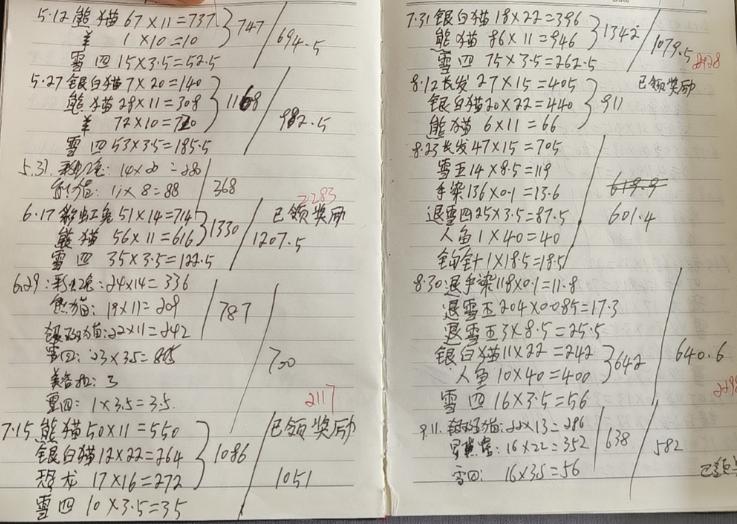 5.12 熊猫 67×11=737 747
羊 1×10=10 694.5
雪四 15×3.5=52.5
5.27 银白猫 7×20=140
熊猫 28×11=308 1168
羊 72×10=720 982.5
雪四 53×3.5=185.5
5.31 14×20=280
11×8=88 368
2283
6.17 彩虹兔 51×14=714 已领奖励
熊猫 56×11=616 1330 1207.5
雪四 35×3.5=122.5
6.29: 24×14=336
熊猫: 19×11=209 787
猫: 22×11=242
雪四: 23×3.5= 700
3
雪四: 1×3.5=3.5 2117
7.15 熊猫 50×11=550 已领奖励
银白猫 12×22=264 1086
恐龙 17×16=272 1051
雪四 10×3.5=35
7.31 银白猫 18×22=396
熊猫 86×11=946 1342
雪四 75×3.5=262.5 1079.5
8.12 长发 27×15=405 已领奖励
银白猫 20×22=440 911
熊猫 6×11=66
8.23 长发 47×15=705
雪五 14×8.5=119
手染 136×0.1=13.6
退雪四 25×3.5=87.5 601.4
人鱼 1×40=40
钩针 1×18.5=18.5
8.30: 退手染 118×0.1=11.8
退雪五 204×0.085=17.3
退雪五 3×8.5=25.5
银白猫 11×22=242 642 640.6
人鱼 10×40=400
雪四 16×3.5=56
9.11. 猫: 22×13=286
16×22=352 638 582
雪四: 16×3.5=56